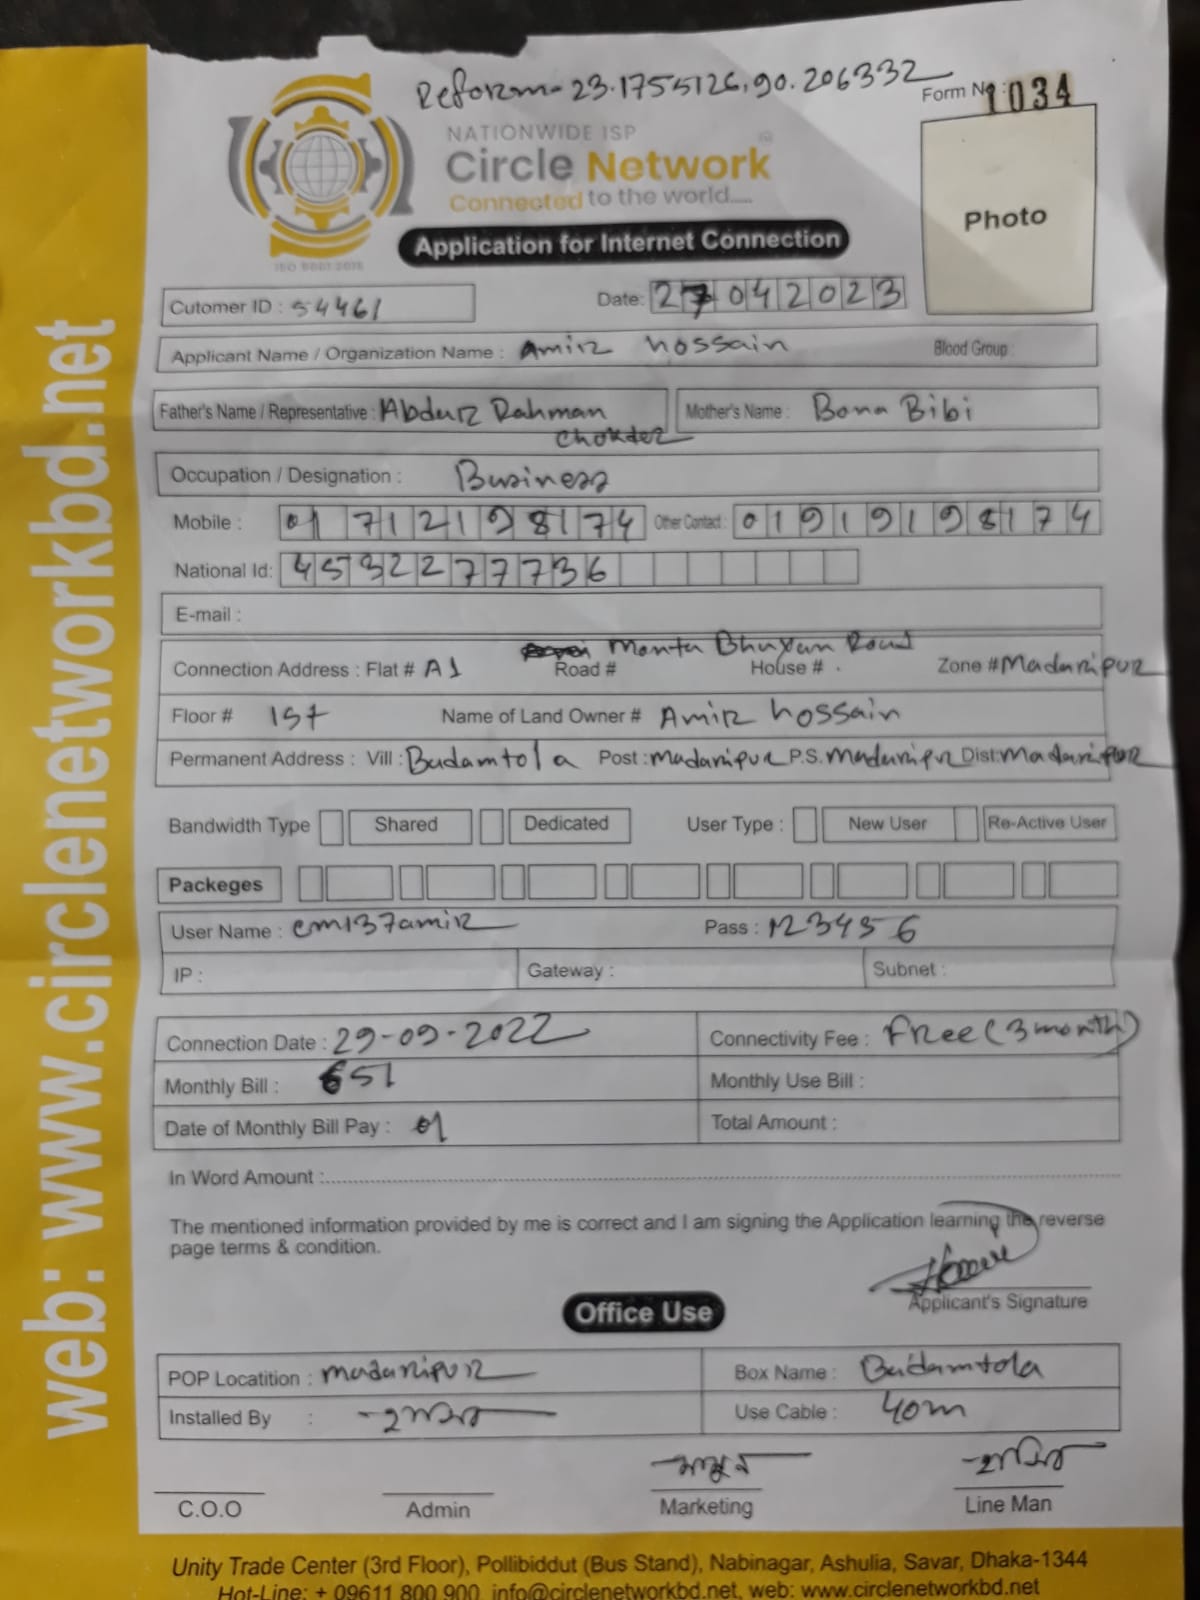 Reform- 23.1755126,90.206332
Form No: 1034
NATIONWIDE ISP
Circle Network
Connected to the world.....
ISO 9001:2015
Photo
Application for Internet Connection
Cutomer ID : 54461 Date: 27042023
Applicant Name / Organization Name : Amir hossain Blood Group :
Father's Name / Representative : Abdur Rahman Chokder Mother's Name : Bona Bibi
Occupation / Designation : Business
Mobile : 01712198174 Other Contact : 01919198174
National Id: 4532277736
E-mail :
Connection Address : Flat # A1 Road # Monta Bhuyan Road House # Zone # Madaripur
Floor # 1st Name of Land Owner # Amir hossain
Permanent Address : Vill : Budamtola Post : madaripur P.S. madaripur Dist: Madaripur
Bandwidth Type Shared Dedicated User Type : New User Re-Active User
Packeges
User Name : cm137amir Pass : 123456
IP : Gateway : Subnet :
Connection Date : 29-09-2022 Connectivity Fee : Free (3 month)
Monthly Bill : 651 Monthly Use Bill :
Date of Monthly Bill Pay : 01 Total Amount :
In Word Amount :
The mentioned information provided by me is correct and I am signing the Application learning the reverse
page terms & condition.
Applicant's Signature
Office Use
POP Locatition : madaripur Box Name : Budamtola
Installed By : Use Cable : 40m
C.O.O Admin Marketing Line Man
Unity Trade Center (3rd Floor), Pollibiddut (Bus Stand), Nabinagar, Ashulia, Savar, Dhaka-1344
Hot-Line: + 09611 800 900, info@circlenetworkbd.net, web: www.circlenetworkbd.net
web: www.circlenetworkbd.net